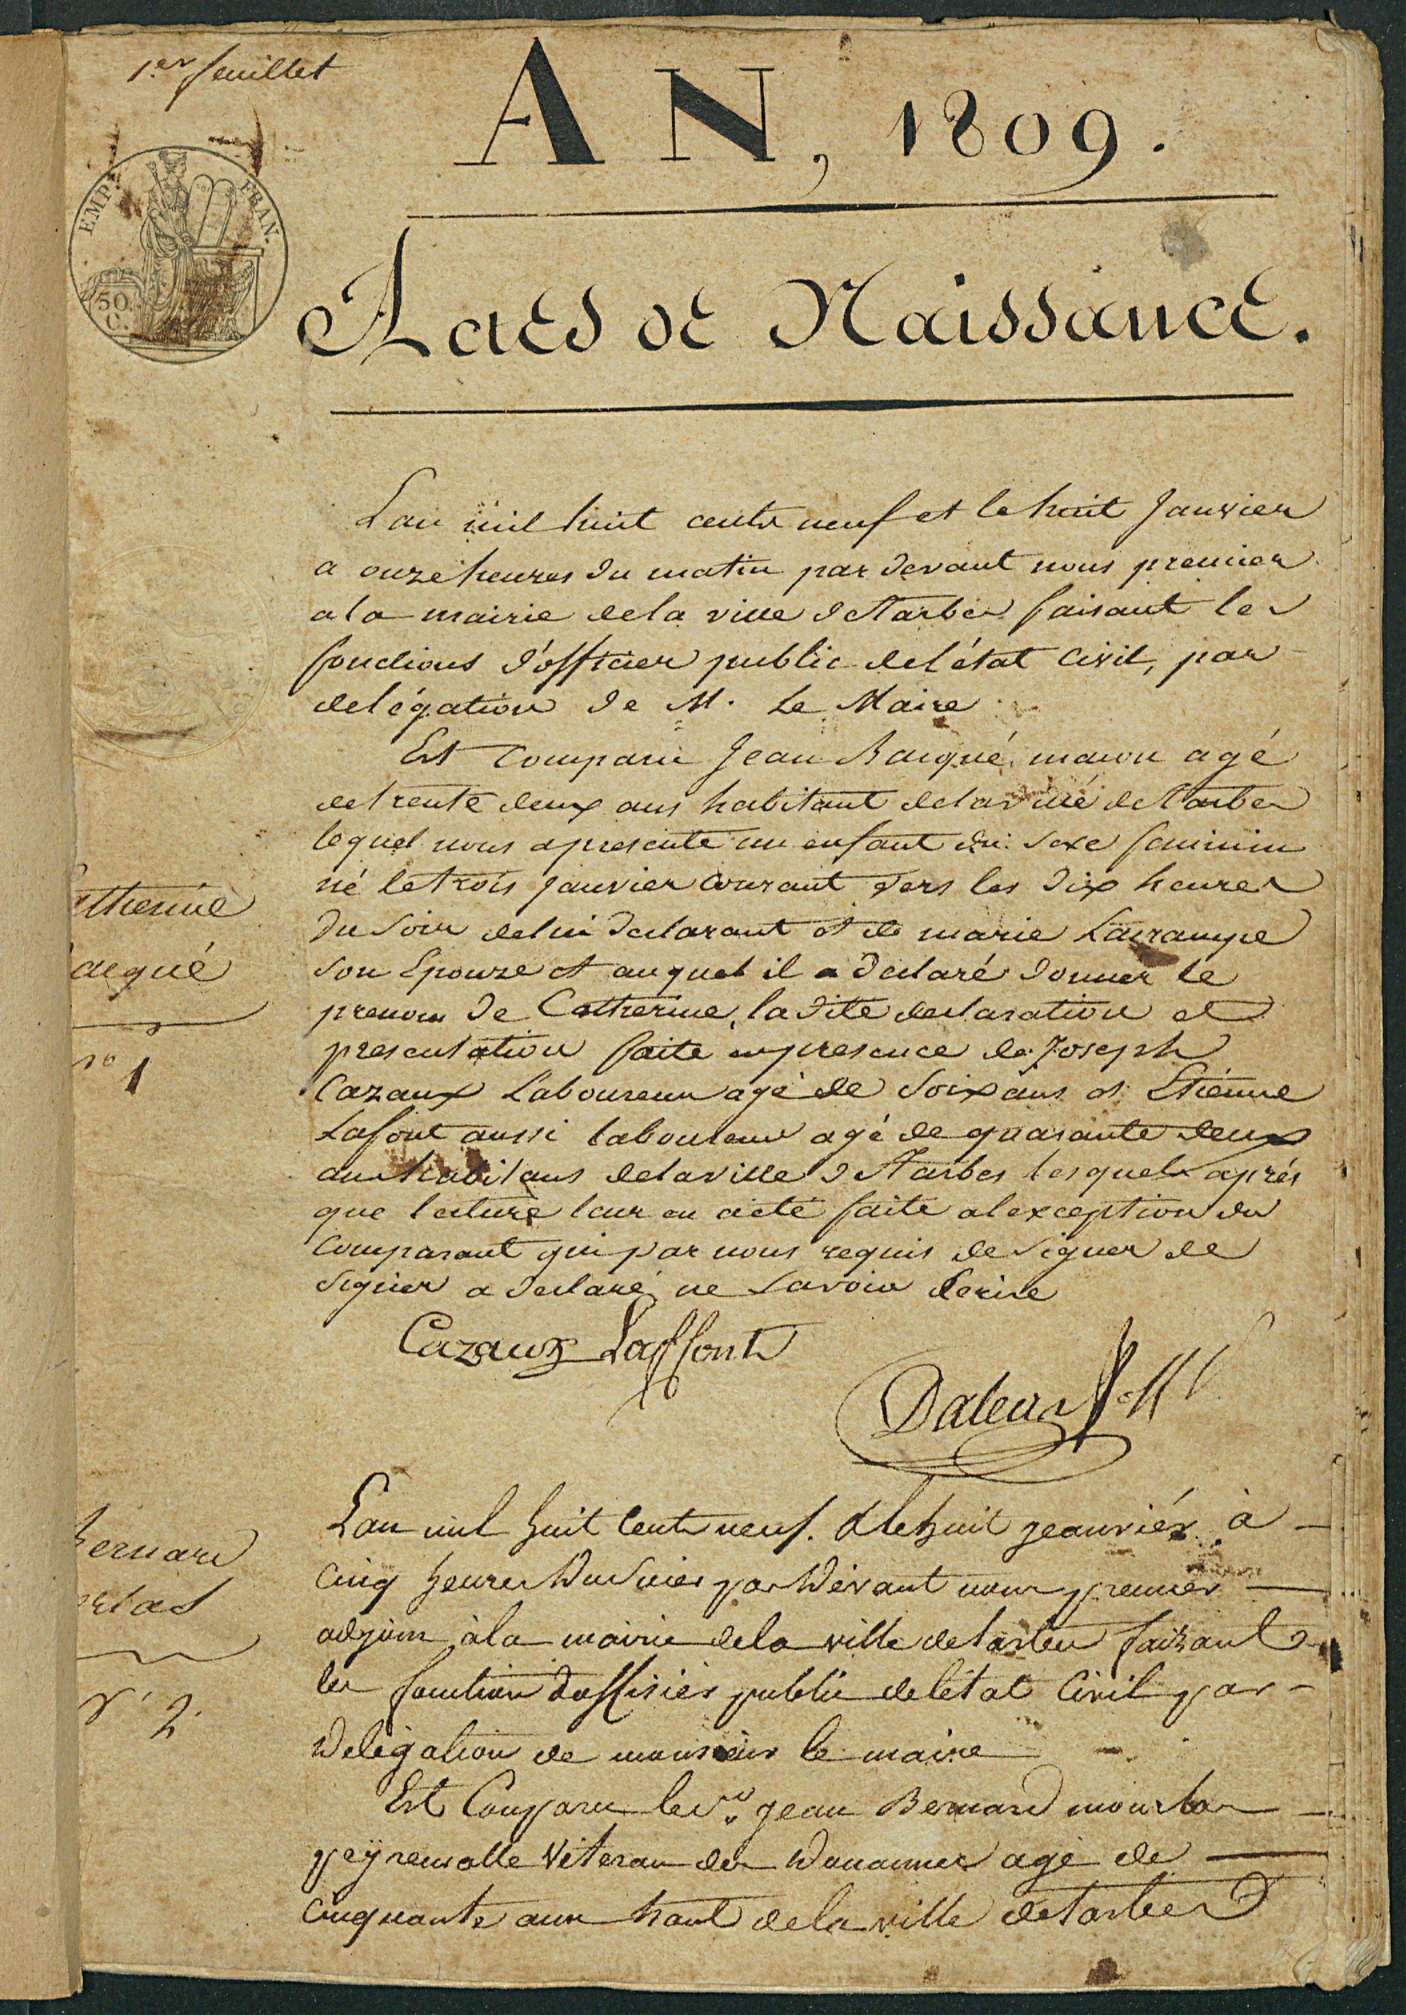 1.er feuillet
AN, 1809.
EMP. FRAN.
50
C.
Actes de Naissance.
Lan mil huit cents neuf et le huit Janvier
a onze heures du matin par devant nous premier
a la mairie de la ville de Tarbes faisant les
fonctions d'officier public de l'état Civil, par
delégation de M. Le Maire
Est Comparu Jean Bacqué, macon agé
de trente deux ans habitant de la ville de Tarbes
lequel nous a presenté un enfant du sexe feminin
né le trois Janvier Courant vers les dix heures
du soir de lui declarant et de marie Lacrampe
son Epouze et auquel il a declaré donner le
prenom de Catherine, la dite declaration et
presentation faite en presence de Joseph
Cazaux Laboureur agé de soix ans et Etienne
Lafont aussi laboureur agé de quarante deux
ans habitans de la ville de Tarbes lesquels après
que lecture leur en a eté faite a l'exception du
Comparant qui par nous requis de signer de
signer a declaré ne savoir Ecrire
Cazaux Laffont
atherine
acqué
no 1
Lan mil huit Cent neuf. & le huit jeanviér à
Cinq heures du soir par devant nous premier
adjoin à la mairie de la ville de tarbes faizant
les fonction doffisiér public de létat Civil par
delégation de monsieur le maire
Est Comparu le sr. jean Bernard mourlas
peÿrenolle Véteran des douannes agé de
Cinquante ans habt de la ville de tarbes
bernard
rlas
No 2.